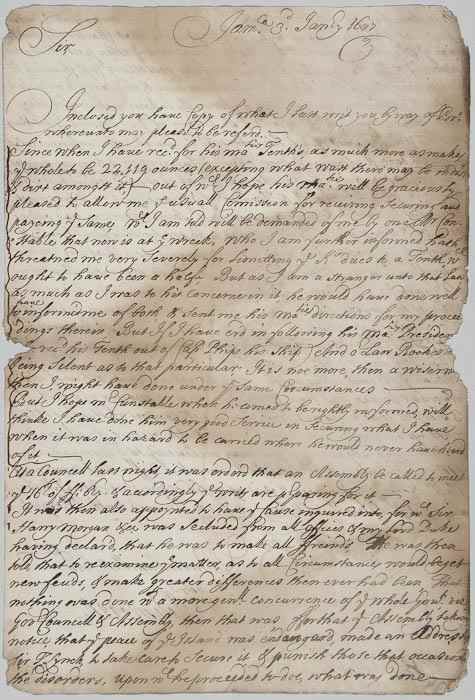 Jam.ca 3.d Jan.ry 1687
Sir
Inclosed you have Copy of what I last writ you by way of
whereunto may please to be referr.
Since when I have rec.d for his Ma.ties Tenths as much more as makes
y.e whole to be 24,119 ounces (excepting what wast there may be in
& dirt amongst it) out of w.ch I hope his Ma.tie will be graciously
pleased to allow me y.e usuall Comission for receiving Securing and
paying y.e Same, w.ch I am told will be demanded of me by one M.r Con=
stable that now is at y.e wreck, who I am further informed hath
threatned me very Severely for limitting y.e K.s dues to a Tenth w.ch
ought to have been a halfe. But as I am a Stranger unto that
as much as I was to his concerne in it, he would have done well
to have informed me of both & sent me his Ma.ties directions for my procee
dings therein. But if I have err'd in following his Ma.ties President
rec.d his Tenth out of Cap.t Phips his Ship, And
being Silent as to that particular It is no more, then a wiser
then I, might have done under y.e Same Circumstances
But I hope M.r Constable when he comes to be rightly informed, will
thinke I have done him very good Service in Securing what I have
when it was in hazard to be carried where he would never have heard
of it
At a Councell last night it was ordred that an Assembly be called to meet
y.e 16.th of & accordingly y.e writs are p.paring for it
It was then also appointed to have y.e cause inquired into for w.ch Sir
Harry Morgan &ca was Secluded from all offices & my Lord Duke
having declared, that he was to make all ffriends He was then
told that to reexamine y.e matter, as to all Circumstances would beget
new feuds, & make greater differences then ever had been That
nothing was done w.th a more gen.ll concurrence of y.e whole
Gov.r Councell & Assembly, then that was, fforthat y.e Assembly taking
notice that y.e peace of y.e Island was endangered, made an Address
to S.r T. Lynch to take care to Secure it & punish those that occasioned
the disorders, upon w.ch he proceeded to doe, what was done